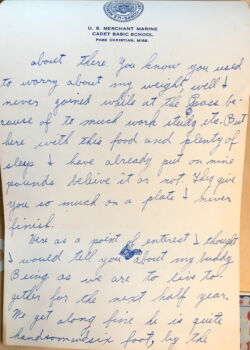 U. S. MERCHANT MARINE
CADET BASIC SCHOOL
PASS CHRISTIAN, MISS.
about there. You know you used
to worry about my weight, well I
never gained while at the Pass be-
cause of to much work study etc. But
here with this food and plenty of
sleep I have already put on nine
pounds beleive it or not. They give
you so much on a plate I never
finish.
Here as a point of interest I thought
I would tell you about my buddy
Being as we are to live to-
gether for the next half year.
We get along fine he is quite
handsome six foot, by the